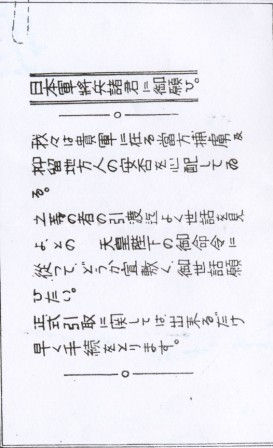 日本軍将兵諸君に御願ひ。
我々は貴軍に在る當方捕虜及
抑留世方人の安否を心配してゐ
る。
之等の者の引渡迄よく世話を見
よ、との 天皇陛下の御命令に
從つて、どうか宜敷く御世話願
ひたい。
正式引取に関しては出来るだけ
早く手續をとります。